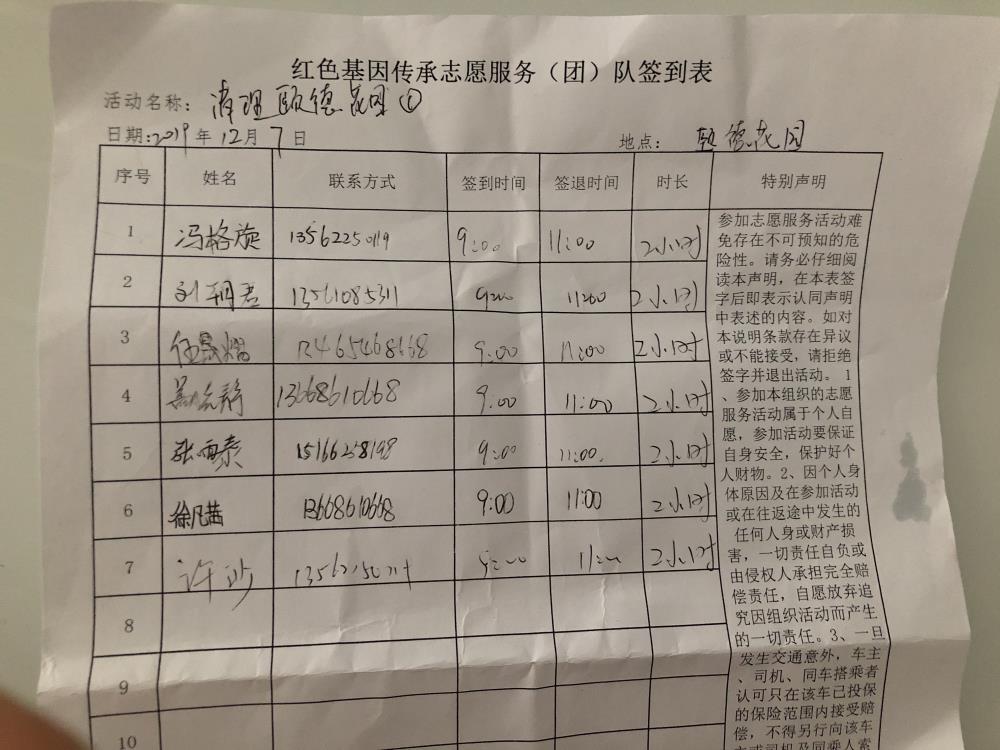 红色基因传承志愿服务（团）队签到表
活动名称：清理颐德花园①
日期：2019年12月7日 地点：颐德花园
序号 姓名 联系方式 签到时间 签退时间 时长 特别声明
1 冯格旋 13562250119 9:00 11:00 2小时
2 13561085311 9:00 11:00 2小时
3 13465468668 9:00 11:00 2小时
4 13668610668 9:00 11:00 2小时
5 张雨泰 15166258198 9:00 11:00 2小时
6 徐凡茜 13668610668 9:00 11:00 2小时
7 许沙 9:00 11:00 2小时
8
9
10
参加志愿服务活动难
免存在不可预知的危
险性。请务必仔细阅
读本声明，在本表签
字后即表示认同声明
中表述的内容。如对
本说明条款存在异议
或不能接受，请拒绝
签字并退出活动。1
、参加本组织的志愿
服务活动属于个人自
愿，参加活动要保证
自身安全，保护好个
人财物。2、因个人身
体原因及在参加活动
或在往返途中发生的
任何人身或财产损
害，一切责任自负或
由侵权人承担完全赔
偿责任，自愿放弃追
究因组织活动而产生
的一切责任。3、一旦
发生交通意外，车主
、司机、同车搭乘者
认可只在该车已投保
的保险范围内接受赔
偿，不得另行向该车
主或司机及同乘人索